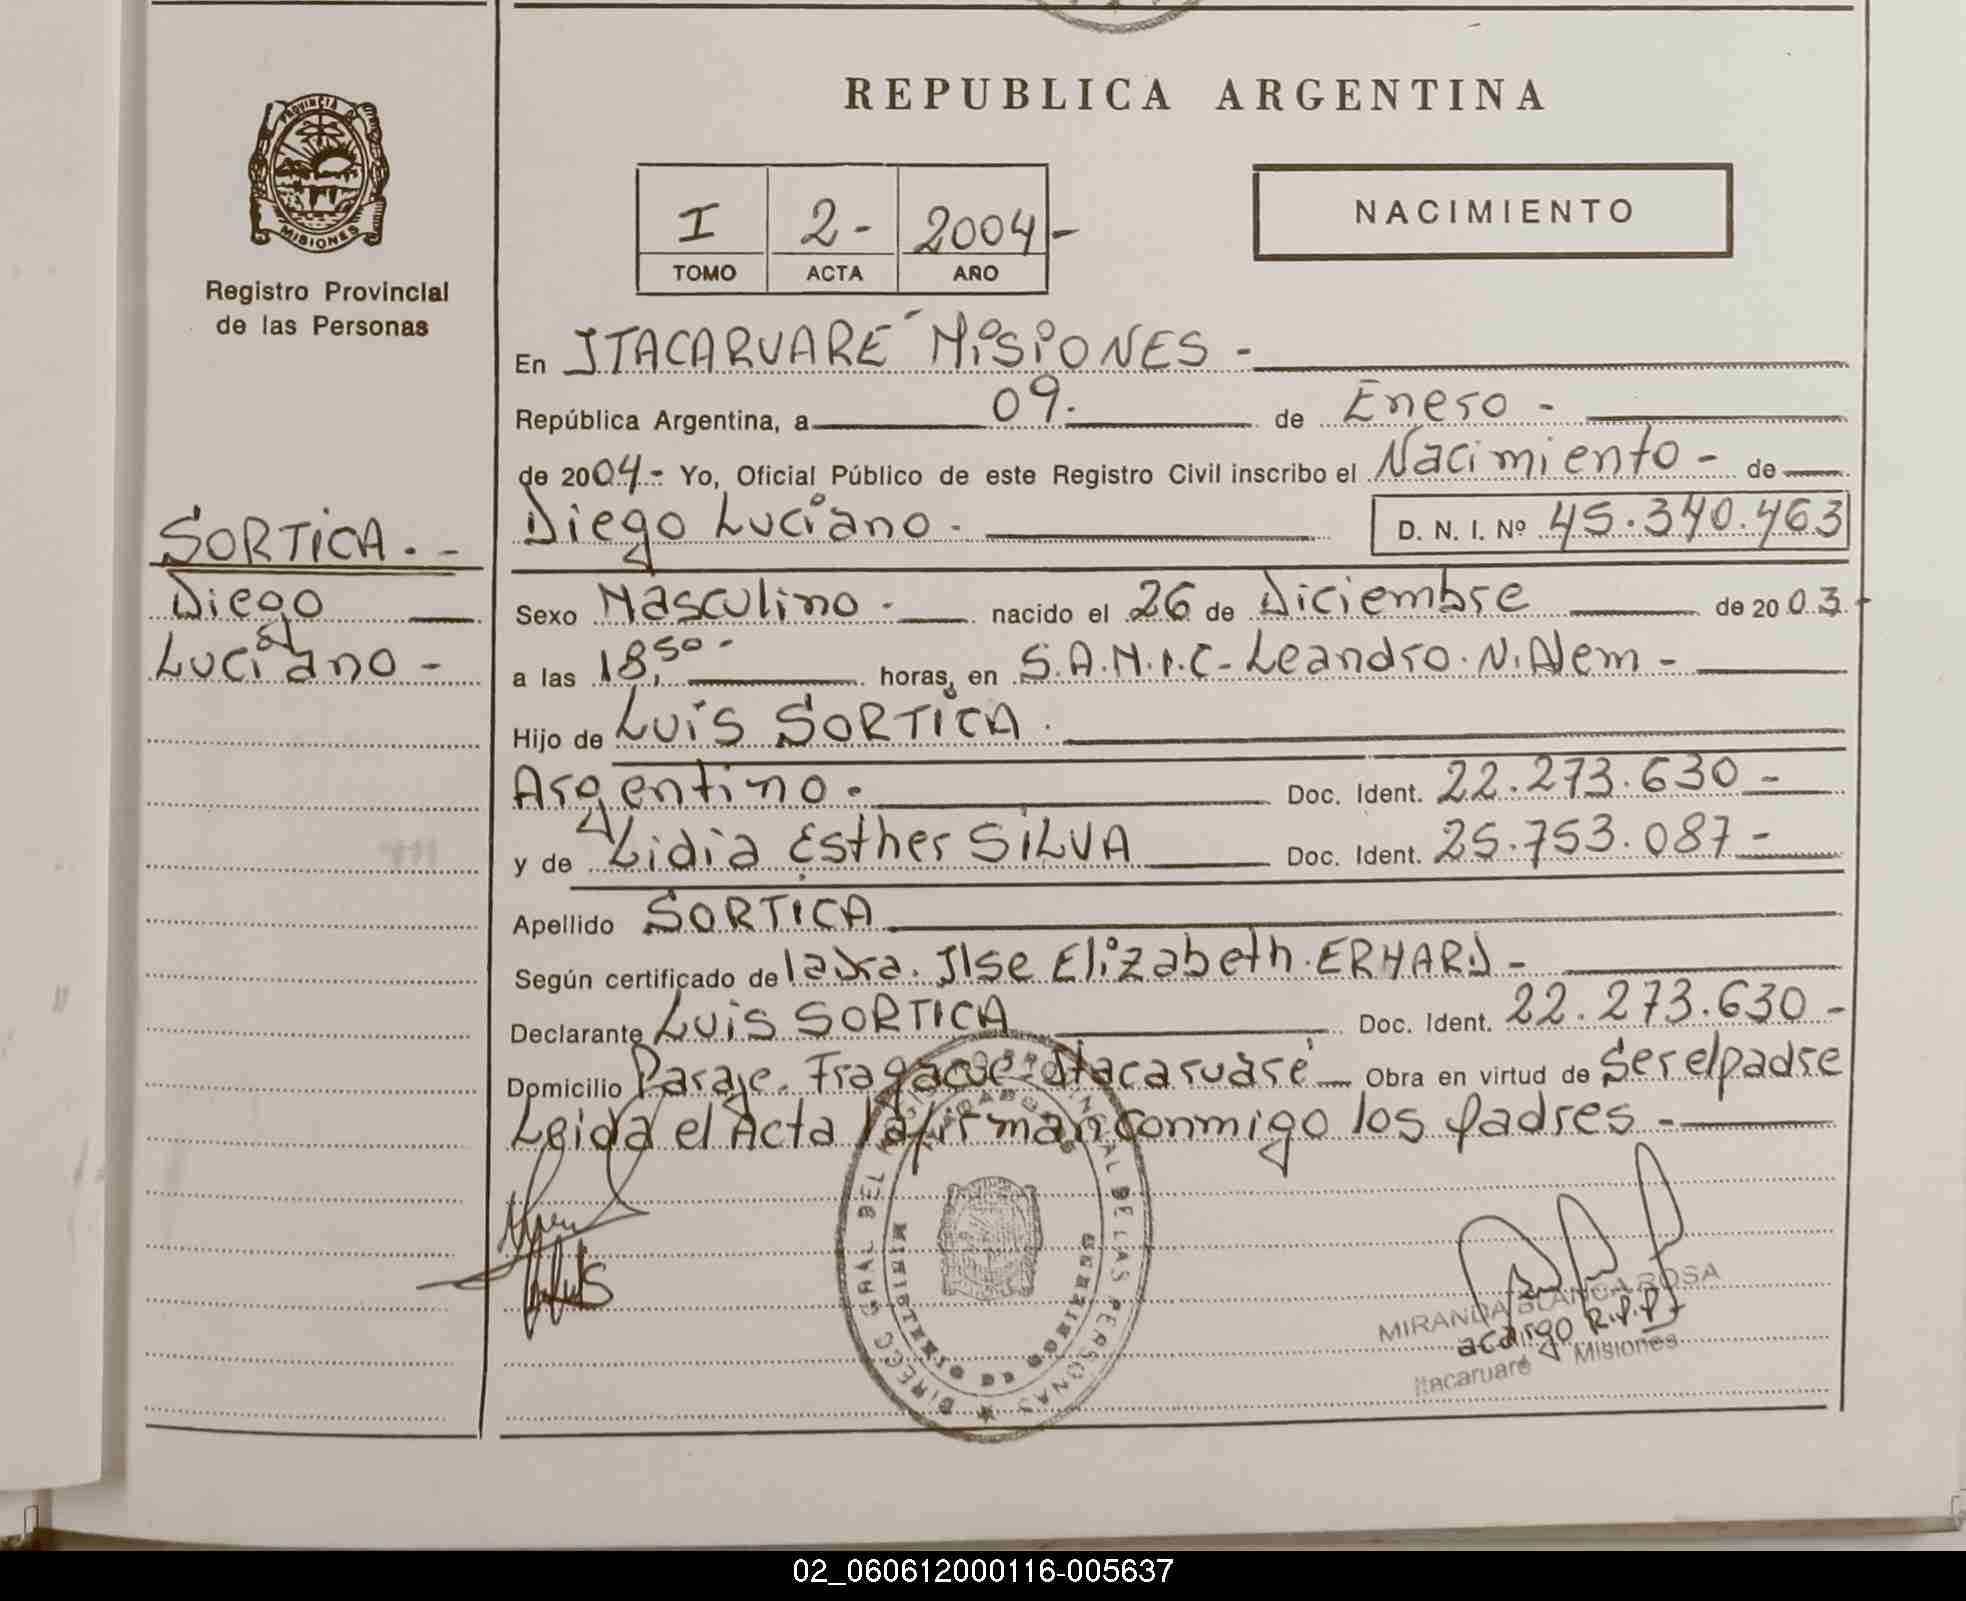 REPUBLICA ARGENTINA
PROVINCIA DE MISIONES
Registro Provincial
de las Personas
I 2- 2004-
TOMO ACTA AÑO
NACIMIENTO
En ITACARUARÉ MISIONES -
República Argentina, a 09. de Enero -
de 2004- Yo, Oficial Público de este Registro Civil inscribo el Nacimiento - de
SORTICA. -
Diego
Luciano -
Diego Luciano - D. N. I. Nº 45.340.463
Sexo Masculino - nacido el 26 de Diciembre de 2003-
a las 18,50- horas, en S.A.M.I.C- Leandro.N.Alem -
Hijo de Luis SORTICA.
Argentino - Doc. Ident. 22.273.630-
y de Lidia Esther SILVA Doc. Ident. 25.753.087-
Apellido SORTICA
Según certificado de la dra. Ilse Elizabeth. ERHARD -
Declarante Luis SORTICA Doc. Ident. 22.273.630-
Domicilio Paraje. Itacaruaré Obra en virtud de Ser el padre
Leida el Acta la firman conmigo los padres -
DIRECC GRAL DEL REGISTRO PROVINCIAL DE LAS PERSONAS
MINISTERIO DE GOBIERNO
MIRANDA BLANCA ROSA
a cargo R.P.P.
Itacaruaré Misiones
02_060612000116-005637